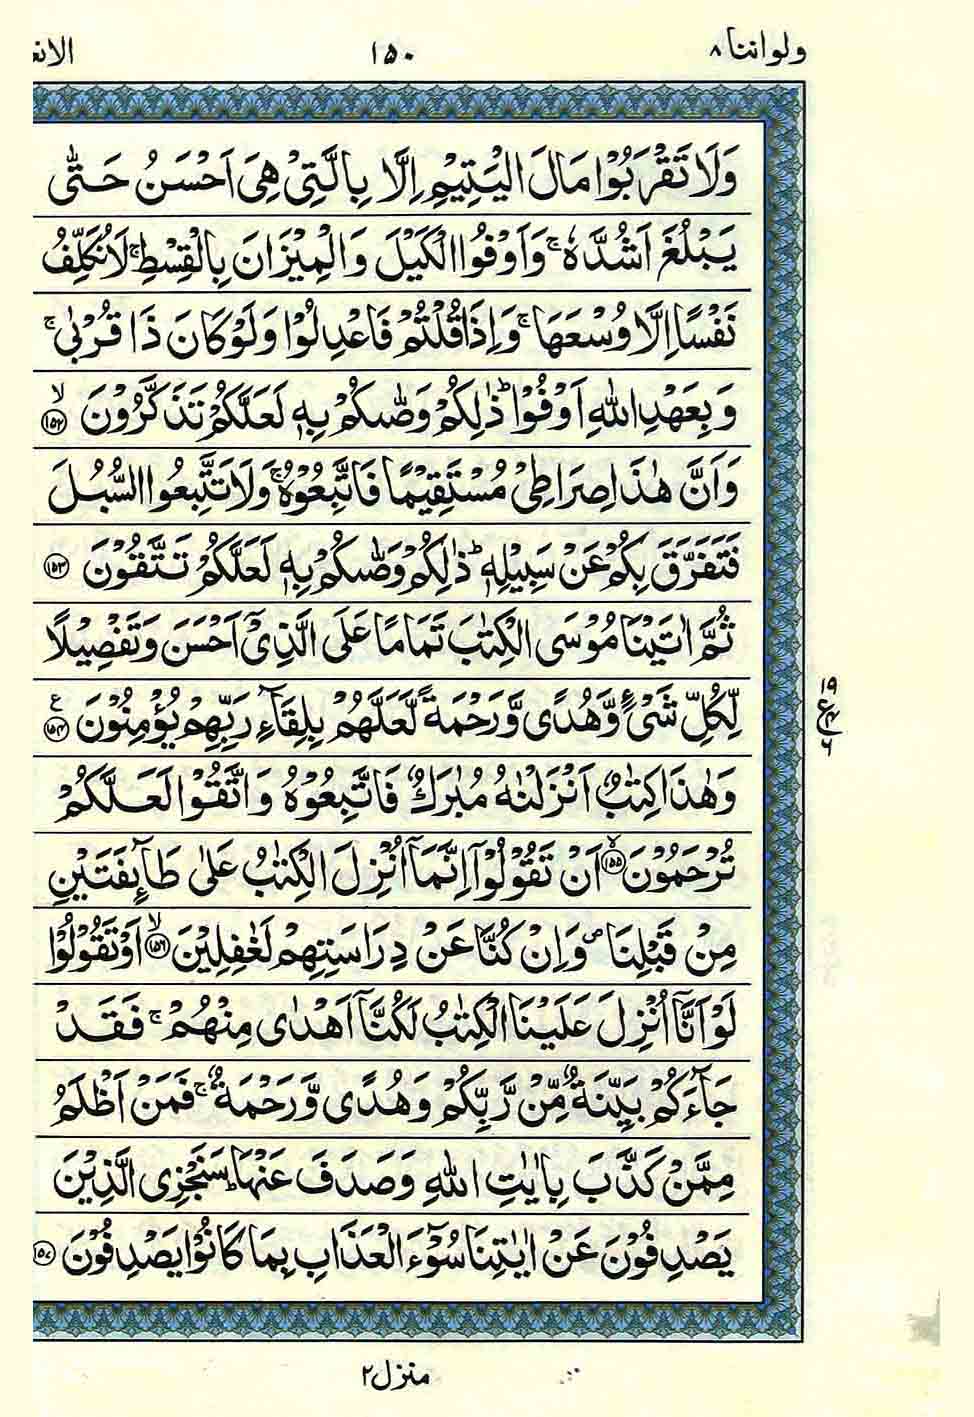 ولواننا ٨
١٥٠
الانع
وَلَا تَقْرَبُوْا مَالَ الْيَتِيْمِ اِلَّا بِالَّتِيْ هِيَ اَحْسَنُ حَتّٰى
يَبْلُغَ اَشُدَّهٗ ۚ وَاَوْفُوا الْكَيْلَ وَالْمِيْزَانَ بِالْقِسْطِ ۚ لَا نُكَلِّفُ
نَفْسًا اِلَّا وُسْعَهَا ۚ وَاِذَا قُلْتُمْ فَاعْدِلُوْا وَلَوْ كَانَ ذَا قُرْبٰى ۚ
وَبِعَهْدِ اللّٰهِ اَوْفُوْا ؕ ذٰلِكُمْ وَصّٰىكُمْ بِهٖ لَعَلَّكُمْ تَذَكَّرُوْنَ ۙ ﴿١٥٢﴾
وَاَنَّ هٰذَا صِرَاطِيْ مُسْتَقِيْمًا فَاتَّبِعُوْهُ ۚ وَلَا تَتَّبِعُوا السُّبُلَ
فَتَفَرَّقَ بِكُمْ عَنْ سَبِيْلِهٖ ؕ ذٰلِكُمْ وَصّٰىكُمْ بِهٖ لَعَلَّكُمْ تَتَّقُوْنَ ﴿١٥٣﴾
ثُمَّ اٰتَيْنَا مُوْسَى الْكِتٰبَ تَمَامًا عَلَى الَّذِيْٓ اَحْسَنَ وَتَفْصِيْلًا
لِّكُلِّ شَيْءٍ وَّهُدًى وَّرَحْمَةً لَّعَلَّهُمْ بِلِقَآءِ رَبِّهِمْ يُؤْمِنُوْنَ ﴿١٥٤﴾ ع
١٩
ع
٤
٦
وَهٰذَا كِتٰبٌ اَنْزَلْنٰهُ مُبٰرَكٌ فَاتَّبِعُوْهُ وَاتَّقُوْا لَعَلَّكُمْ
تُرْحَمُوْنَ ۙ ﴿١٥٥﴾ اَنْ تَقُوْلُوْٓا اِنَّمَآ اُنْزِلَ الْكِتٰبُ عَلٰى طَآئِفَتَيْنِ
مِنْ قَبْلِنَا ۪ وَاِنْ كُنَّا عَنْ دِرَاسَتِهِمْ لَغٰفِلِيْنَ ۙ ﴿١٥٦﴾ اَوْ تَقُوْلُوْا
لَوْ اَنَّآ اُنْزِلَ عَلَيْنَا الْكِتٰبُ لَكُنَّآ اَهْدٰى مِنْهُمْ ۚ فَقَدْ
جَآءَكُمْ بَيِّنَةٌ مِّنْ رَّبِّكُمْ وَهُدًى وَّرَحْمَةٌ ۚ فَمَنْ اَظْلَمُ
مِمَّنْ كَذَّبَ بِاٰيٰتِ اللّٰهِ وَصَدَفَ عَنْهَا ؕ سَنَجْزِي الَّذِيْنَ
يَصْدِفُوْنَ عَنْ اٰيٰتِنَا سُوْٓءَ الْعَذَابِ بِمَا كَانُوْا يَصْدِفُوْنَ ﴿١٥٧﴾
منزل ٢